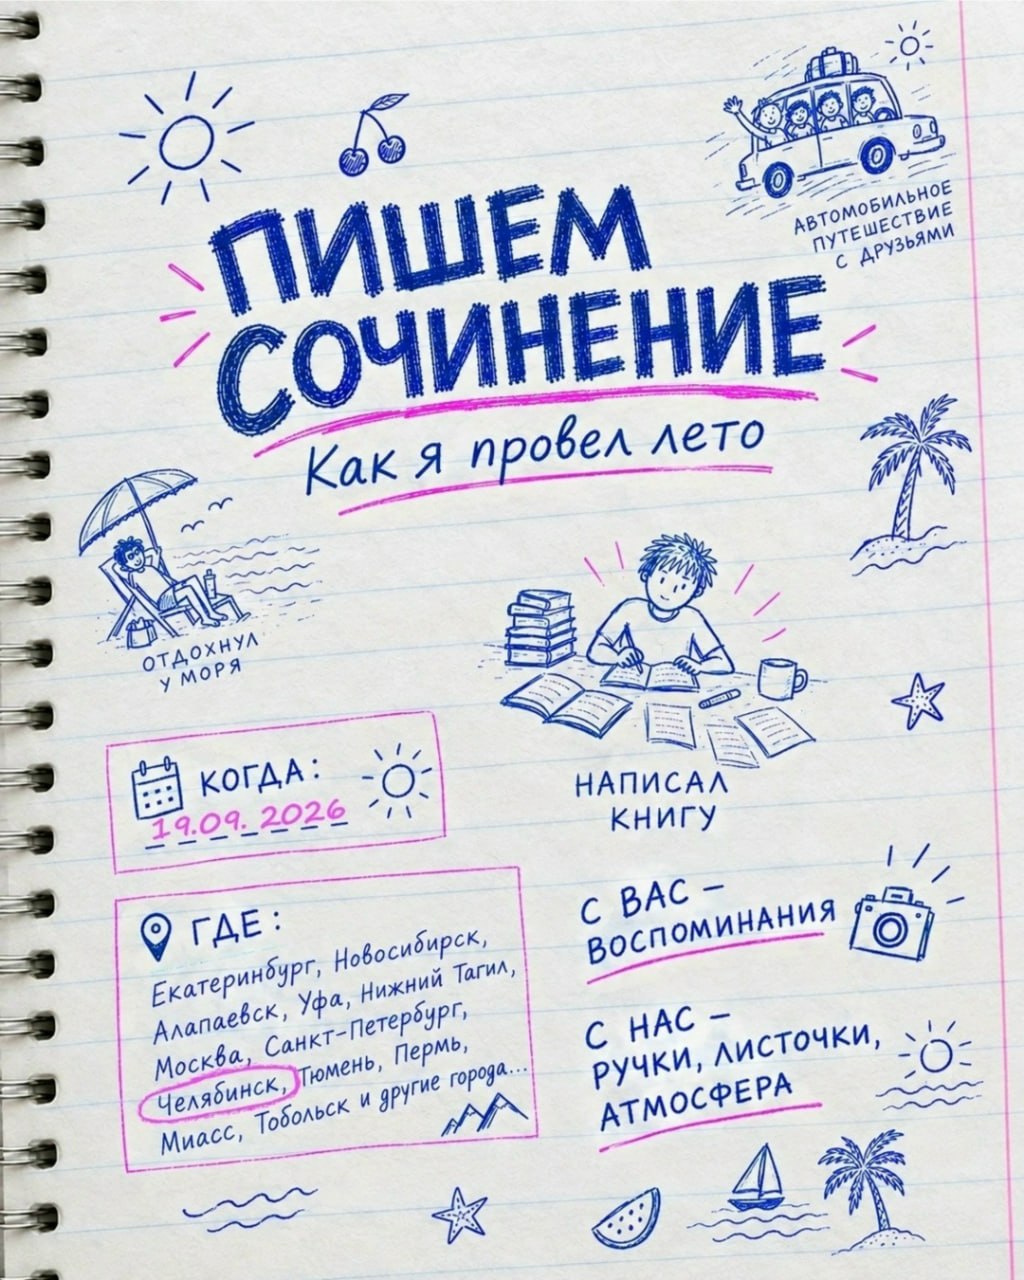 АВТОМОБИЛЬНОЕ
ПУТЕШЕСТВИЕ
С ДРУЗЬЯМИ
ПИШЕМ
СОЧИНЕНИЕ
Как я провел лето
ОТДОХНУЛ
У МОРЯ
НАПИСАЛ
КНИГУ
КОГДА:
19.09.2026
ГДЕ:
Екатеринбург, Новосибирск,
Алапаевск, Уфа, Нижний Тагил,
Москва, Санкт-Петербург,
Челябинск, Тюмень, Пермь,
Миасс, Тобольск и другие города...
С ВАС –
ВОСПОМИНАНИЯ
С НАС –
РУЧКИ, ЛИСТОЧКИ,
АТМОСФЕРА